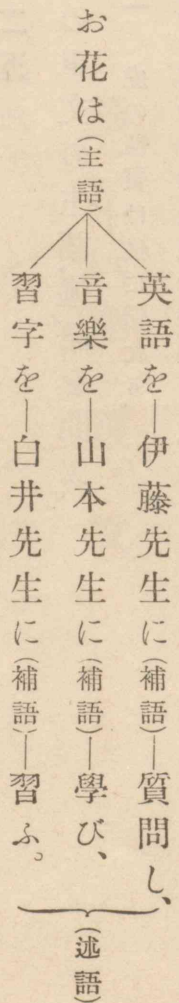 お花は(主語)
英語を―伊藤先生に(補語)―質問し、
音樂を―山本先生に(補語)―學び、
習字を―白井先生に(補語)―習ふ。
(述語)